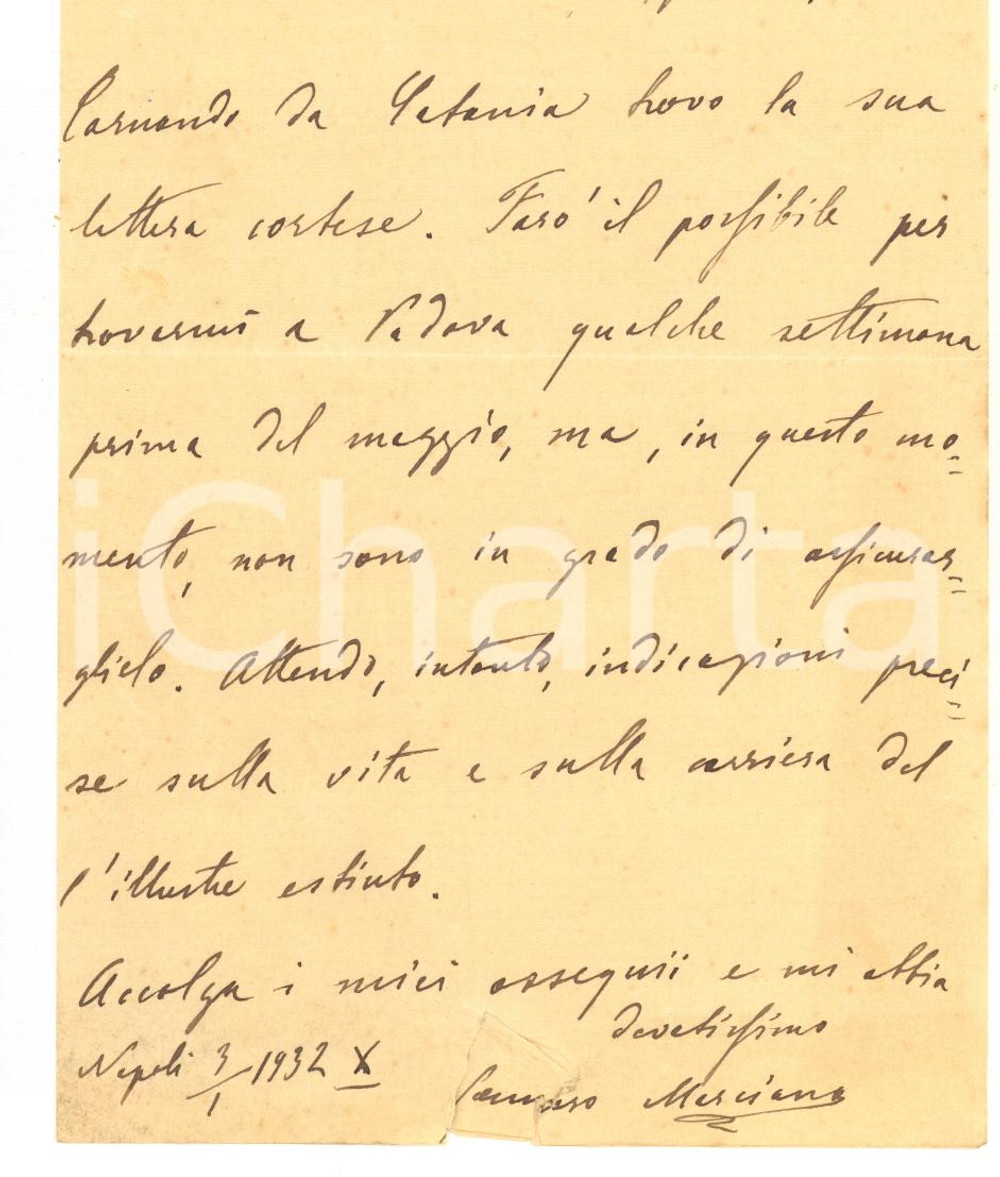 Tornando da Catania trovo la sua
lettera cortese. Farò il possibile per
trovarmi a Padova qualche settimana
prima del maggio, ma, in questo mo=
mento, non sono in grado di assicurar=
glielo. Attendo, intanto, indicazioni preci=
se sulla vita e sulla carriera del
l'illustre estinto.
Accolga i miei ossequii e mi abbia
devotissimo
Napoli 3/1 1932 X
Gennaro Marciano
iCharta